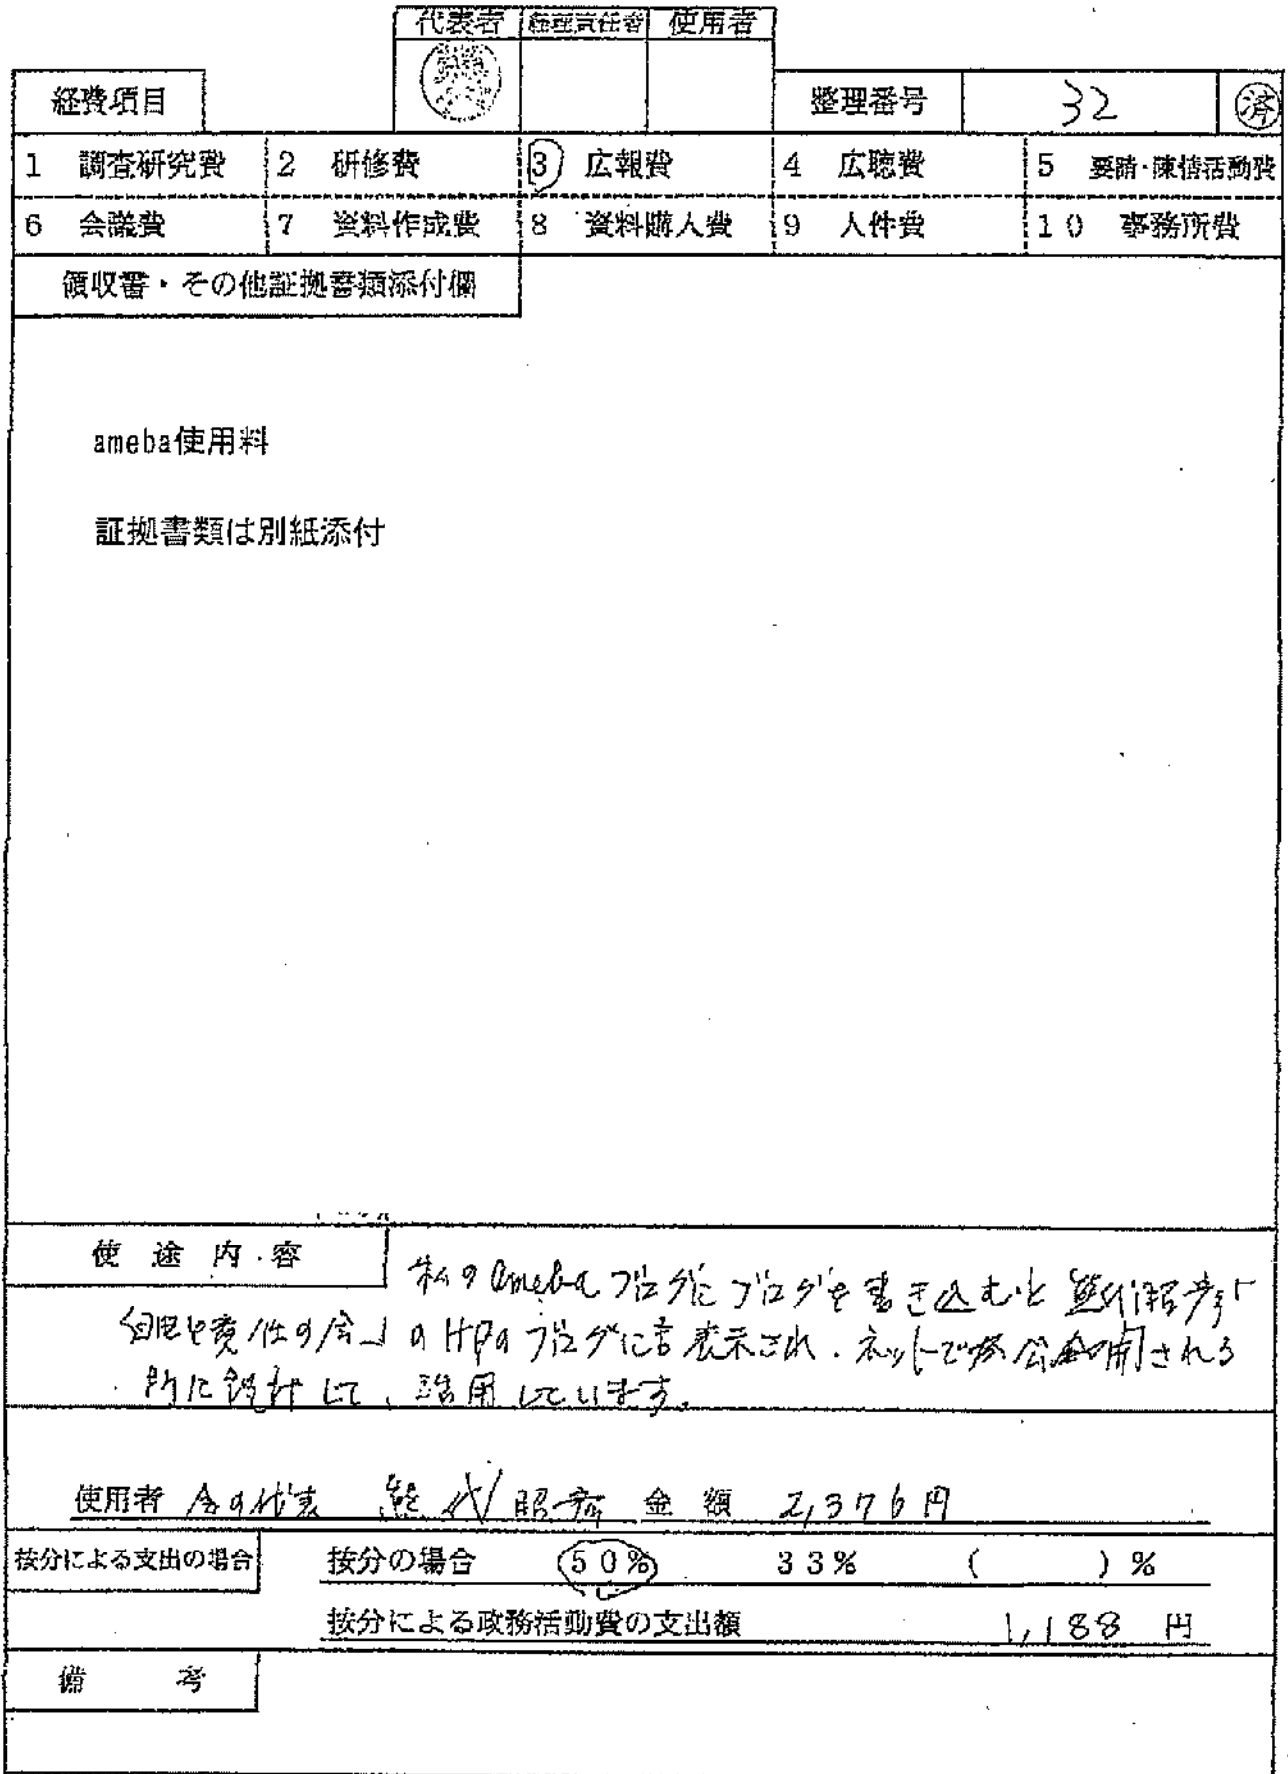 代表者 経理責任者 使用者
経費項目 整理番号 32 済
1 調査研究費 2 研修費 3 広報費 4 広聴費 5 要請・陳情活動費
6 会議費 7 資料作成費 8 資料購入費 9 人件費 10 事務所費
領収書・その他証拠書類添付欄
ameba使用料
証拠書類は別紙添付
使途内容
私のamebaブログにブログを書き込むと
の会」のHPのブログに 表示され、ネットで 公開される
設計して、活用しています。
使用者 会の代表 熊代昭彦 金額 2,376円
按分による支出の場合 按分の場合 50% 33% ( )%
按分による政務活動費の支出額 1,188 円
備考